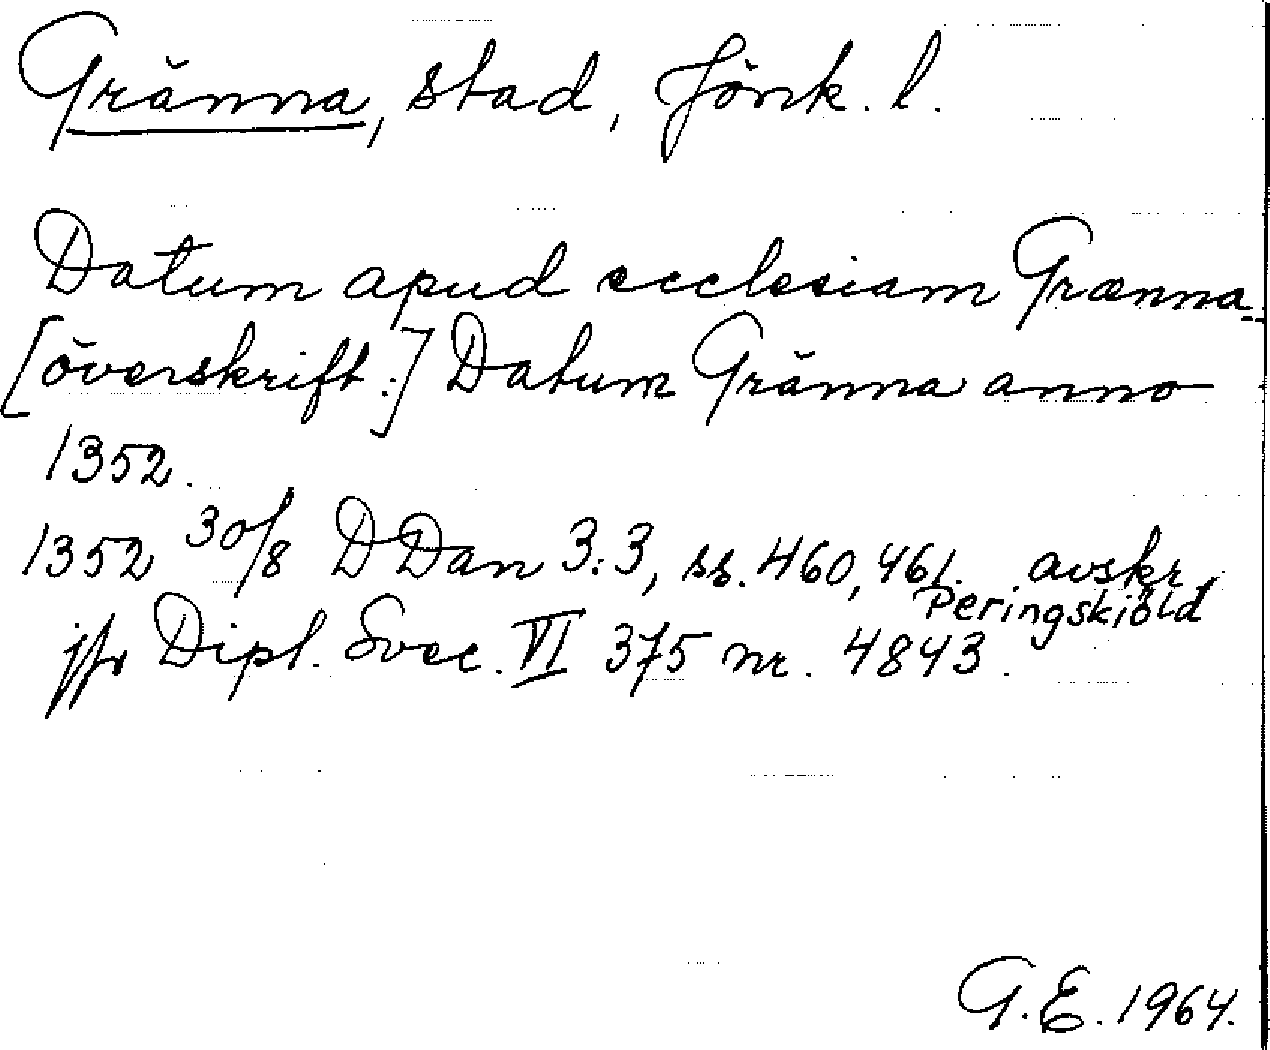 Gränna, stad, Jönk. l.
Datum apud ecclesiam Grænna.
[överskrift:] Datum Gränna anno
1352.
1352 30/8 DDan 3:3, ss. 460, 461. avskr.
Peringskiöld
jfr Dipl. Svec. VI 375 nr. 4843.
G.E. 1964.